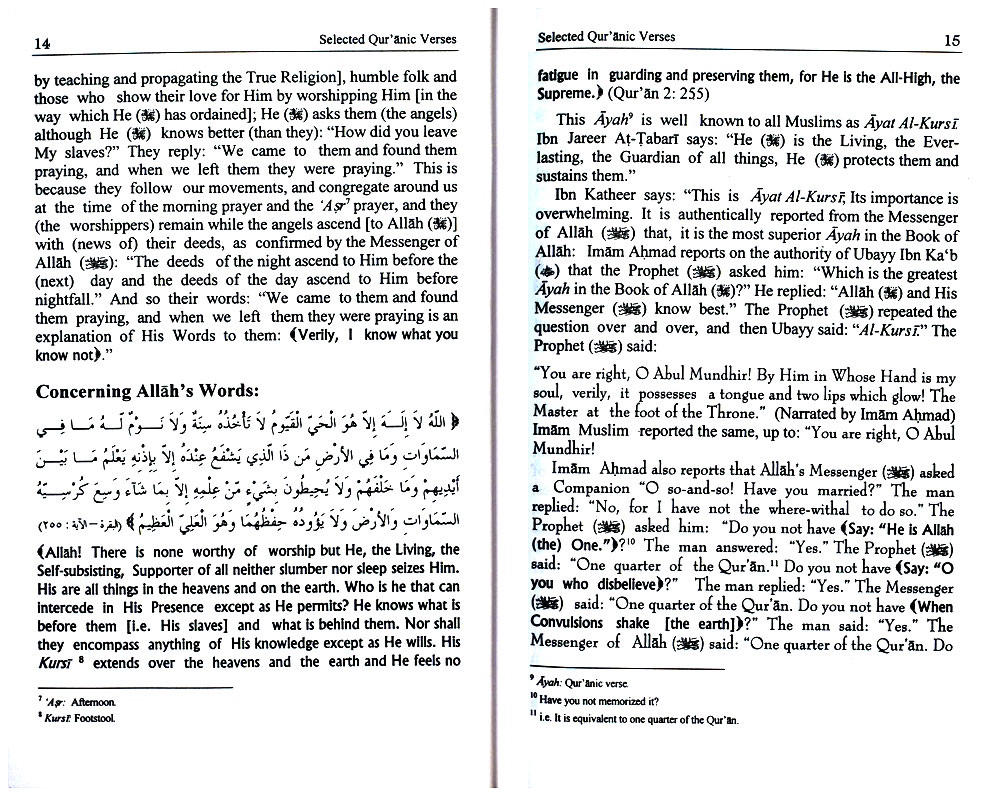 14 Selected Qur'ānic Verses
by teaching and propagating the True Religion], humble folk and
those who show their love for Him by worshipping Him [in the
way which He (ﷻ) has ordained]; He (ﷻ) asks them (the angels)
although He (ﷻ) knows better (than they): "How did you leave
My slaves?" They reply: "We came to them and found them
praying, and when we left them they were praying." This is
because they follow our movements, and congregate around us
at the time of the morning prayer and the 'Aṣr⁷ prayer, and they
(the worshippers) remain while the angels ascend [to Allāh (ﷻ)]
with (news of) their deeds, as confirmed by the Messenger of
Allāh (ﷺ): "The deeds of the night ascend to Him before the
(next) day and the deeds of the day ascend to Him before
nightfall." And so their words: "We came to them and found
them praying, and when we left them they were praying is an
explanation of His Words to them: ﴾Verily, I know what you
know not﴿."
Concerning Allāh's Words:
﴿ اللَّهُ لَا إِلَـهَ إِلَّا هُوَ الْحَيُّ الْقَيُّومُ لَا تَأْخُذُهُ سِنَةٌ وَلَا نَوْمٌ لَهُ مَا فِي
السَّمَاوَاتِ وَمَا فِي الْأَرْضِ مَن ذَا الَّذِي يَشْفَعُ عِنْدَهُ إِلَّا بِإِذْنِهِ يَعْلَمُ مَا بَيْنَ
أَيْدِيهِمْ وَمَا خَلْفَهُمْ وَلَا يُحِيطُونَ بِشَيْءٍ مِّنْ عِلْمِهِ إِلَّا بِمَا شَاءَ وَسِعَ كُرْسِيُّهُ
السَّمَاوَاتِ وَالْأَرْضَ وَلَا يَؤُودُهُ حِفْظُهُمَا وَهُوَ الْعَلِيُّ الْعَظِيمُ ﴾ (البقرة – الآية : ٢٥٥)
﴾Allah! There is none worthy of worship but He, the Living, the
Self-subsisting, Supporter of all neither slumber nor sleep seizes Him.
His are all things in the heavens and on the earth. Who is he that can
intercede in His Presence except as He permits? He knows what is
before them [i.e. His slaves] and what is behind them. Nor shall
they encompass anything of His knowledge except as He wills. His
Kursī ⁸ extends over the heavens and the earth and He feels no
⁷ 'Aṣr: Afternoon.
⁸ Kursī: Footstool.
Selected Qur'ānic Verses 15
fatigue in guarding and preserving them, for He is the All-High, the
Supreme.﴿ (Qur'ān 2: 255)
This Āyah⁹ is well known to all Muslims as Āyat Al-Kursī.
Ibn Jareer Aṭ-Ṭabarī says: "He (ﷻ) is the Living, the Ever-
lasting, the Guardian of all things, He (ﷻ) protects them and
sustains them."
Ibn Katheer says: "This is Āyat Al-Kursī; Its importance is
overwhelming. It is authentically reported from the Messenger
of Allāh (ﷺ) that, it is the most superior Āyah in the Book of
Allāh: Imām Aḥmad reports on the authority of Ubayy Ibn Ka'b
() that the Prophet (ﷺ) asked him: "Which is the greatest
Āyah in the Book of Allāh (ﷻ)?" He replied: "Allāh (ﷻ) and His
Messenger (ﷺ) know best." The Prophet (ﷺ) repeated the
question over and over, and then Ubayy said: "Al-Kursī." The
Prophet (ﷺ) said:
"You are right, O Abul Mundhir! By Him in Whose Hand is my
soul, verily, it possesses a tongue and two lips which glow! The
Master at the foot of the Throne." (Narrated by Imām Aḥmad)
Imām Muslim reported the same, up to: "You are right, O Abul
Mundhir!
Imām Aḥmad also reports that Allāh's Messenger (ﷺ) asked
a Companion "O so-and-so! Have you married?" The man
replied: "No, for I have not the where-withal to do so." The
Prophet (ﷺ) asked him: "Do you not have ﴾Say: "He is Allāh
(the) One."﴿?¹⁰ The man answered: "Yes." The Prophet (ﷺ)
said: "One quarter of the Qur'ān.¹¹ Do you not have ﴾Say: "O
you who disbelieve﴿?" The man replied: "Yes." The Messenger
(ﷺ) said: "One quarter of the Qur'ān. Do you not have ﴾When
Convulsions shake [the earth]﴿?" The man said: "Yes." The
Messenger of Allāh (ﷺ) said: "One quarter of the Qur'ān. Do
⁹ Āyah: Qur'ānic verse.
¹⁰ Have you not memorized it?
¹¹ i.e. It is equivalent to one quarter of the Qur'ān.